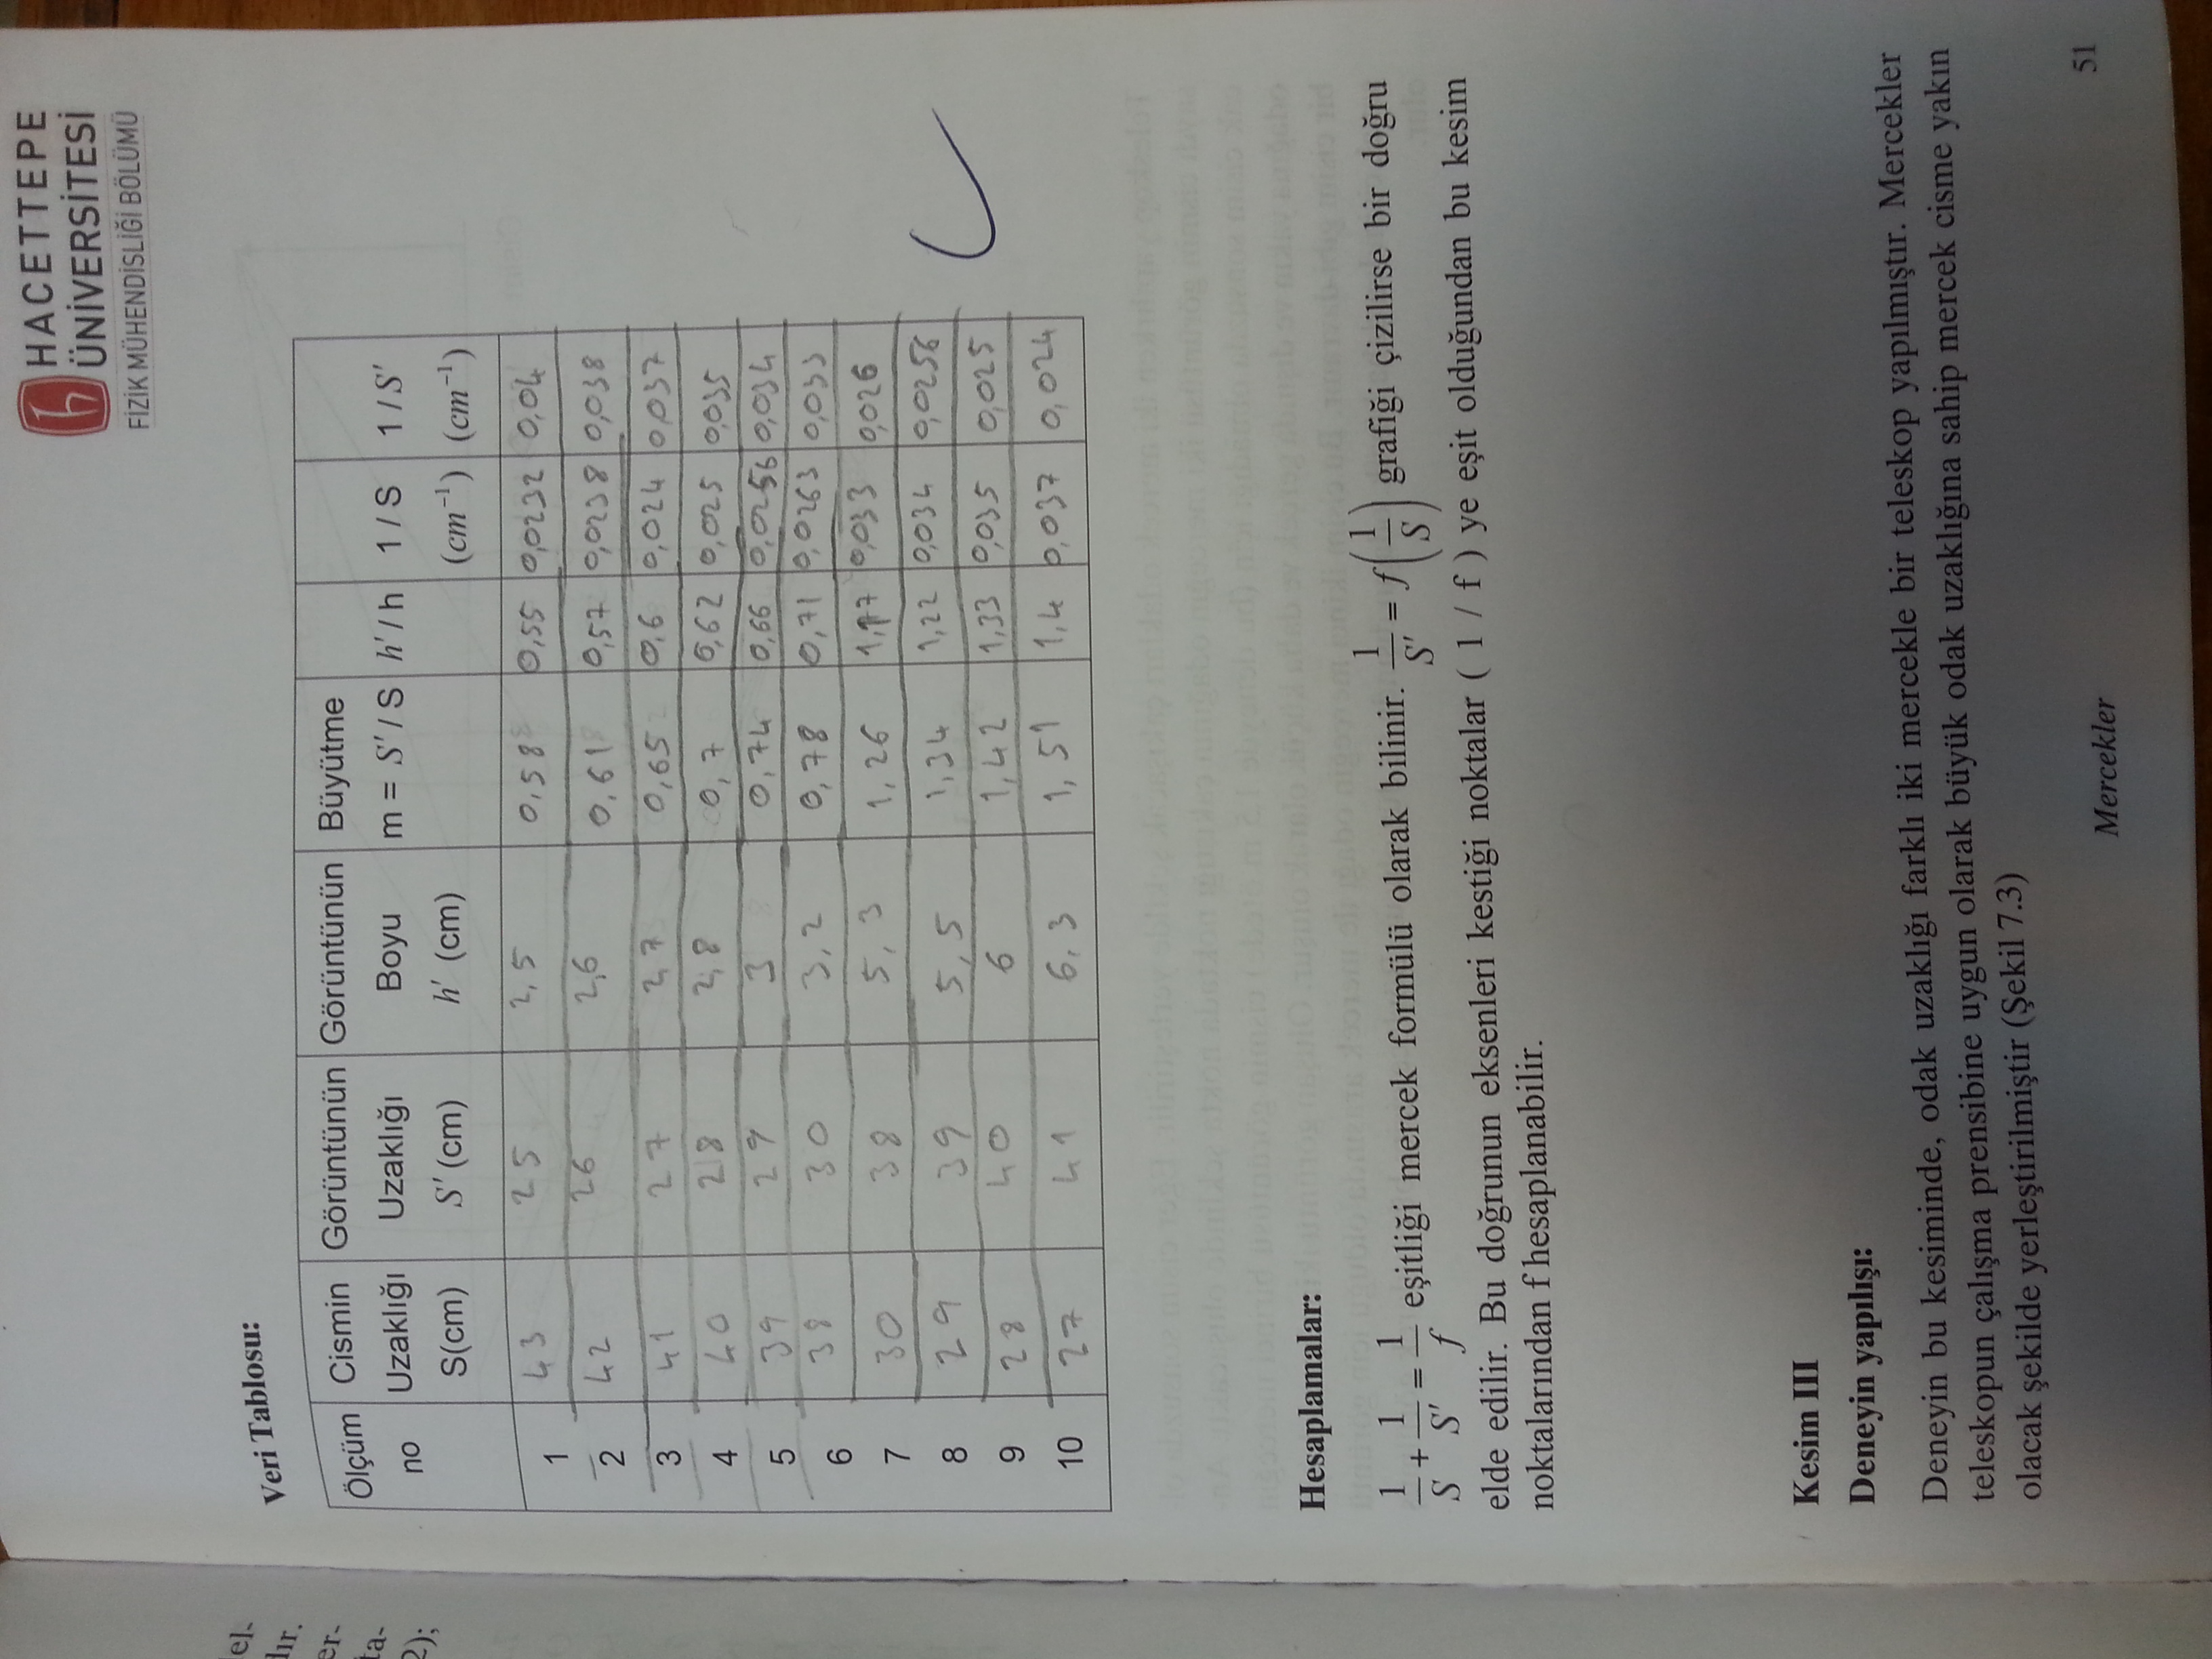 HACETTEPE
ÜNİVERSİTESİ
FİZİK MÜHENDİSLİĞİ BÖLÜMÜ
el-
dır.
er-
ta-
2);
Veri Tablosu:
Ölçüm no | Cismin Uzaklığı S(cm) | Görüntünün Uzaklığı S' (cm) | Görüntünün Boyu h' (cm) | Büyütme m = S' / S | h' / h | 1 / S (cm⁻¹) | 1 / S' (cm⁻¹)
1 43 25 2,5 0,58 0,55 0,0232 0,04
2 42 26 2,6 0,61 0,57 0,0238 0,038
3 41 27 2,7 0,65 0,6 0,024 0,037
4 40 28 2,8 0,7 0,62 0,025 0,035
5 39 29 3 0,74 0,66 0,0256 0,034
6 38 30 3,2 0,78 0,71 0,0263 0,033
7 30 38 5,3 1,26 1,17 0,033 0,026
8 29 39 5,5 1,34 1,22 0,034 0,0256
9 28 40 6 1,42 1,33 0,035 0,025
10 27 41 6,3 1,51 1,4 0,037 0,024
Hesaplamalar:
1/S + 1/S' = 1/f eşitliği mercek formülü olarak bilinir. 1/S' = f(1/S) grafiği çizilirse bir doğru
elde edilir. Bu doğrunun eksenleri kestiği noktalar ( 1 / f ) ye eşit olduğundan bu kesim
noktalarından f hesaplanabilir.
Kesim III
Deneyin yapılışı:
Deneyin bu kesiminde, odak uzaklığı farklı iki mercekle bir teleskop yapılmıştır. Mercekler
teleskopun çalışma prensibine uygun olarak büyük odak uzaklığına sahip mercek cisme yakın
olacak şekilde yerleştirilmiştir (Şekil 7.3)
Mercekler
51